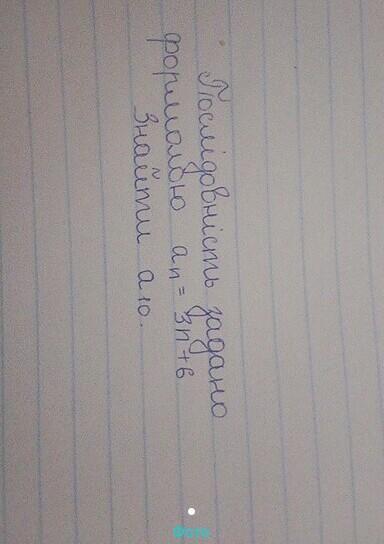 Послідовність задано
формулою aₙ = 3n+6
Знайти a₁₀.
Фото